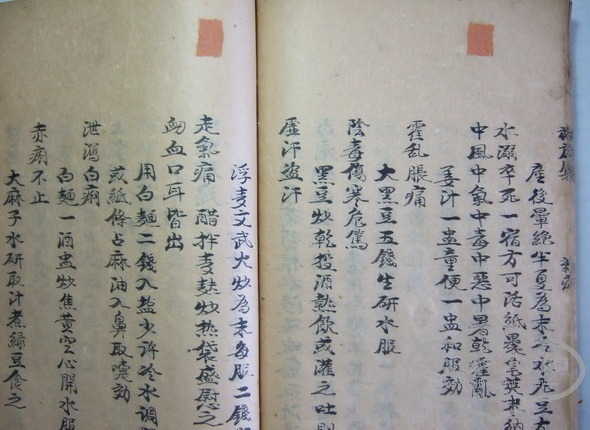 產後暈絕半夏為末冷水丸豆大
水溺卒死一宿方可活紙裹皂莢末納
中風中氣中毒中惡中暑乾霍亂
姜汁一盅童便一盅和服効
霍亂脹痛
大黑豆五錢生研水服
陰毒傷寒危篤
黑豆炒乾投酒熱飲或灌之吐則
虛汗盜汗
浮麦文武火炒為末每服二錢
走氣痛 醋拌麦麸炒热袋盛慰之
衂血口耳皆出
用白麵二錢入盐少许冷水調
或紙條占麻油入鼻取嚏効
泄瀉白痢
白麵一酒盅炒焦黄空心開水服
赤痢不止
大麻子水研取汁煮綠豆食之